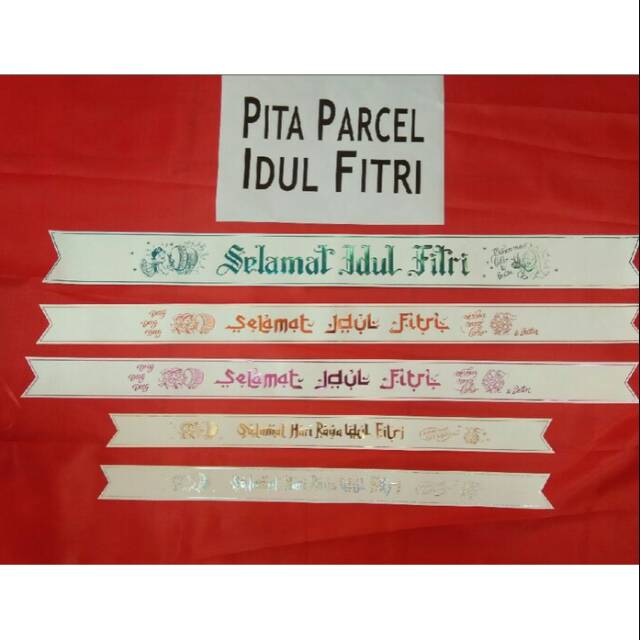 PITA PARCEL
IDUL FITRI
Selamat Idul Fitri
Dag Dag Dag Selamat Idul Fitri
Dag Dag Dag Selamat Idul Fitri
Selamat Hari Raya Idul Fitri
Selamat Hari Raya Idul Fitri